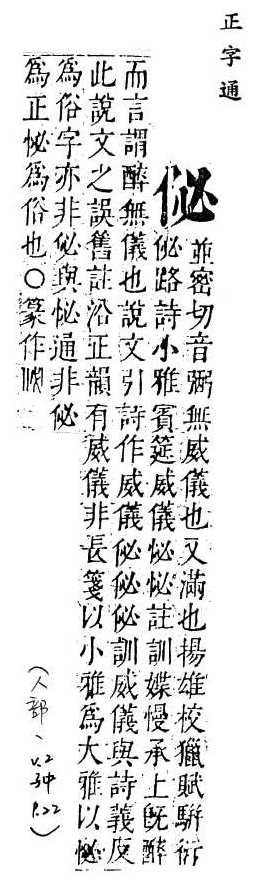 正字通
佖
並密切音弼無威儀也又滿也揚雄校獵賦駢衍
佖路詩小雅賓筵威儀怭怭註訓媟慢承上旣醉
而言謂醉無儀也說文引詩作威儀佖佖佖訓威儀與詩義反
此說文之誤舊註沿正韻有威儀非長箋以小雅爲大雅以怭
爲俗字亦非佖與怭通非佖
爲正怭爲俗也○篆作
(人部、
v.2
子中
P.22)